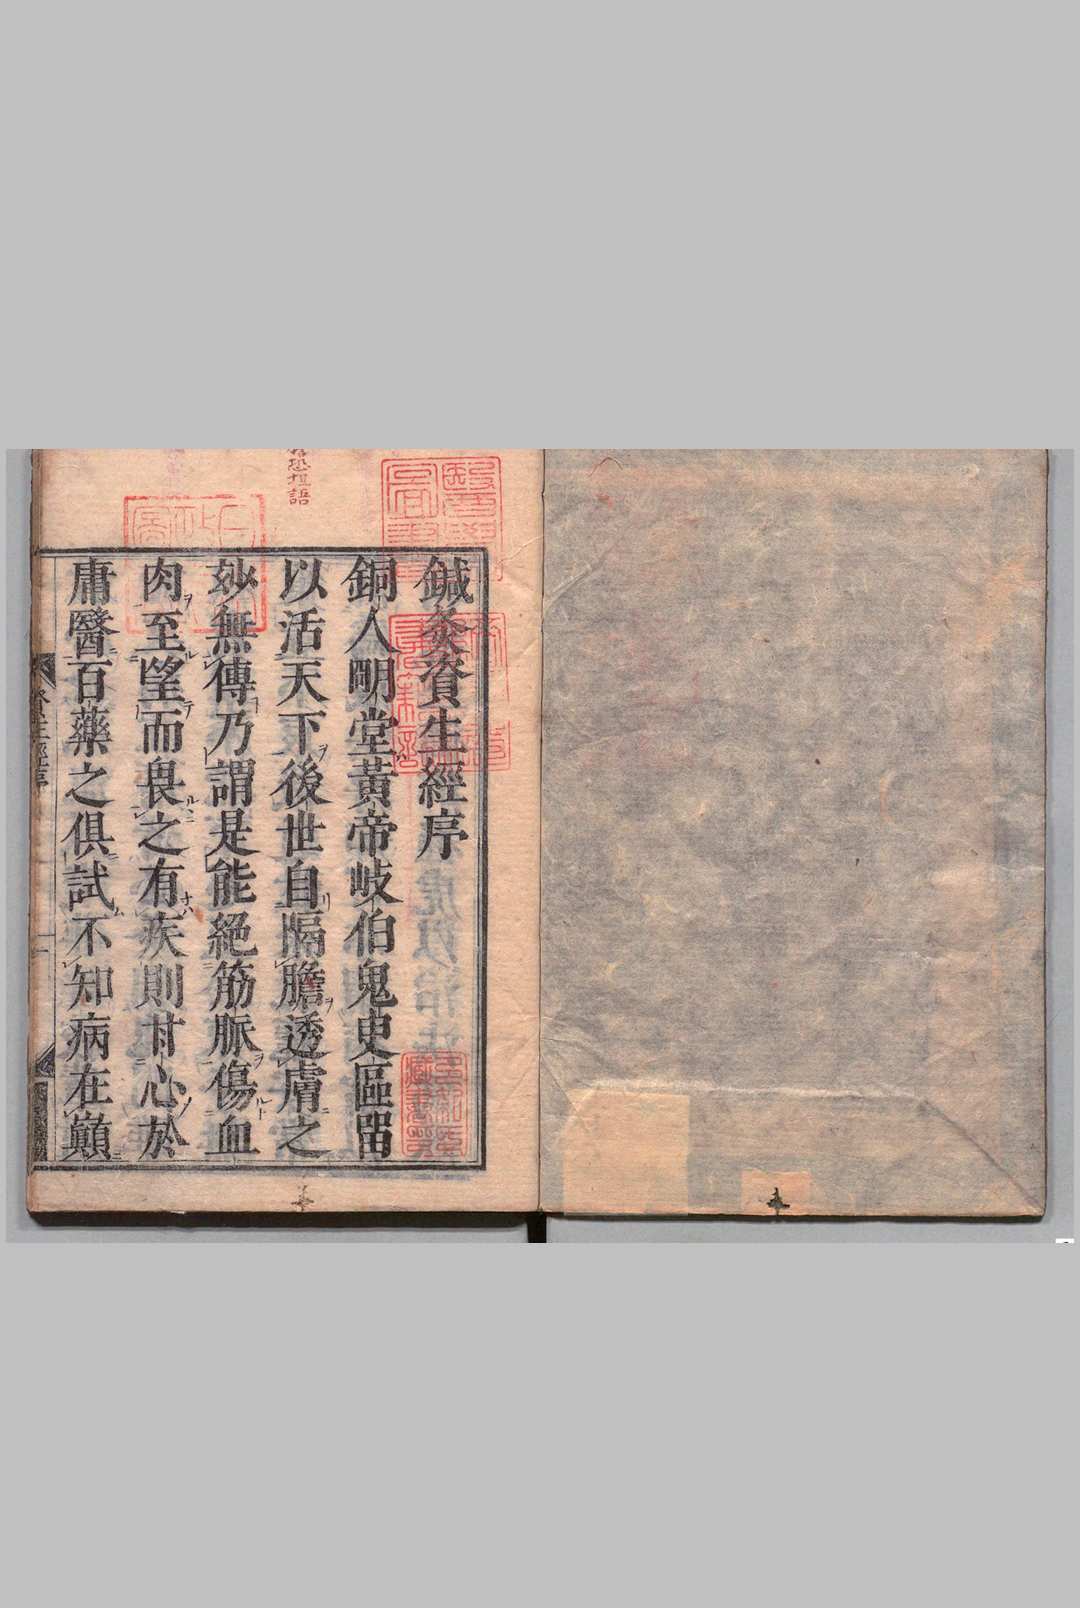 鍼灸資生經序
銅人明堂黃帝岐伯鬼臾區留
以活天下後世自膈膽透膚之
妙無傳乃謂是能絕筋脈傷血
肉至望而畏之有疾則甘心於
庸醫百藥之俱試不知病在巔
資生經序